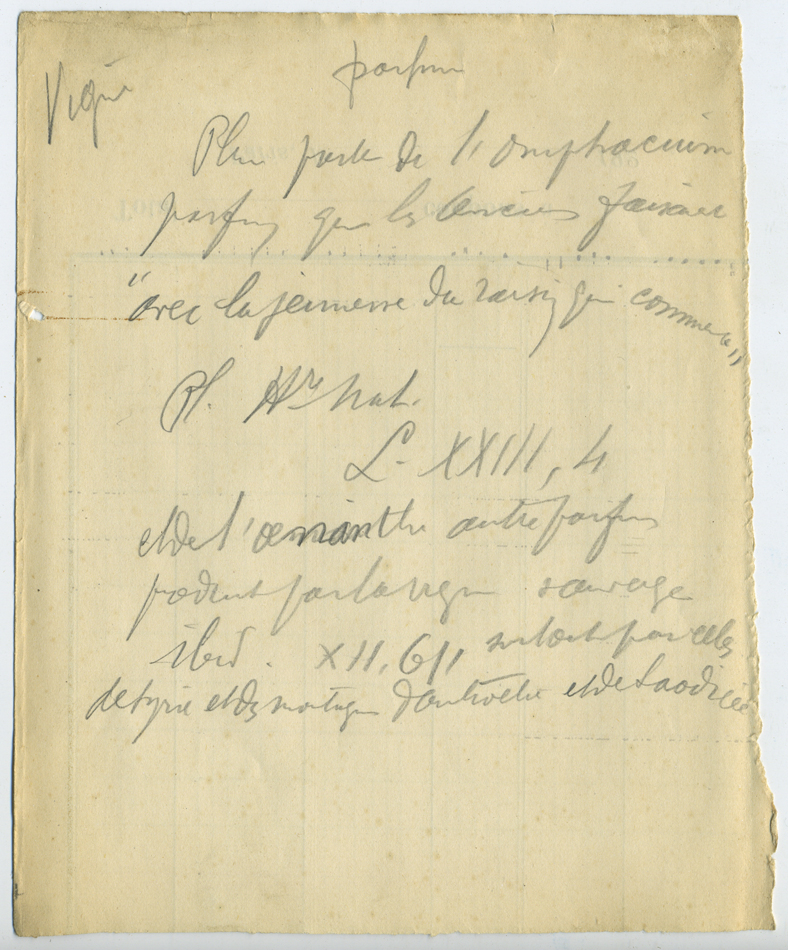 Vigne
parfum
Pline parle de l'omphacium
parfum que les Anciens faisaient
"avec la jeunesse du raisin qui commence"
Pl. Hre Nat.
L. XXIII, 4
et de l'oenanthe autre parfum
produit par la vigne sauvage
ibid. XII, 61, surtout par celles
de Syrie et des montagnes d'Antioche et de Laodicée